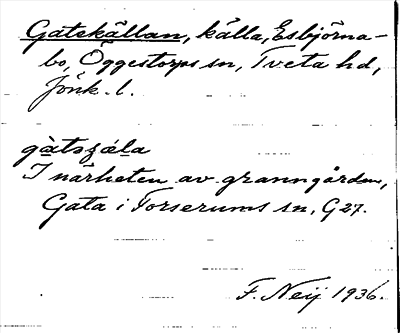 Gatekällan, källa, Esbjörna-
bo, Öggestorps sn, Tveta hd,
Jönk. l.
gàtsʒǽla
I närheten av granngården,
Gata i Forserums sn, G 27.
F. Neij 1936.